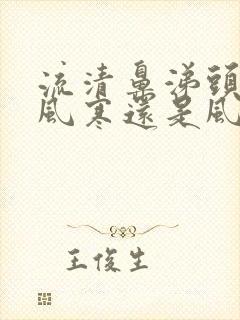 流清鼻涕頭
風寒還是風
王俊生